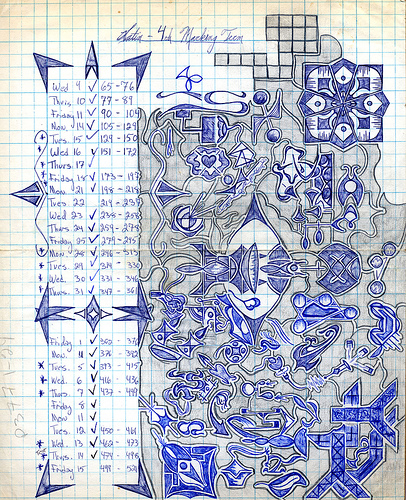 Latin - 4th Marking Term
Wed 9 ✓ 65-76
Thurs. 10 ✓ 77-89
Friday 11 ✓ 90-104
Mon. 14 ✓ 105-128
Tues. 15 ✓ 129-150
Wed 16 ✓ 151-172
Thurs. 17 ✓
Friday 18 ✓ 173-197
Mon. 21 ✓ 198-218
Tues 22 219-234
Wed 23 ✓ 235-258
Thurs 24 ✓ 259-278
Friday 25 ✓ 279-295
Mon. 28 ✓ 296-313
Tues. 29 ✓ 314-330
Wed. 30 ✓ 331-346
Thurs. 31 ✓ 347-361
Friday 1 ✓ 362-375
Mon. 4 ✓ 376-392
Tues. 5 ✓ 393-415
Wed. 6 ✓ 416-436
Thurs. 7 ✓ 437-449
Friday 8 ✓
Mon 11 ✓
Tues. 12 ✓ 450-461
Wed. 13 ✓ 462-473
Thurs. 14 ✓ 474-496
Friday 15 498-521